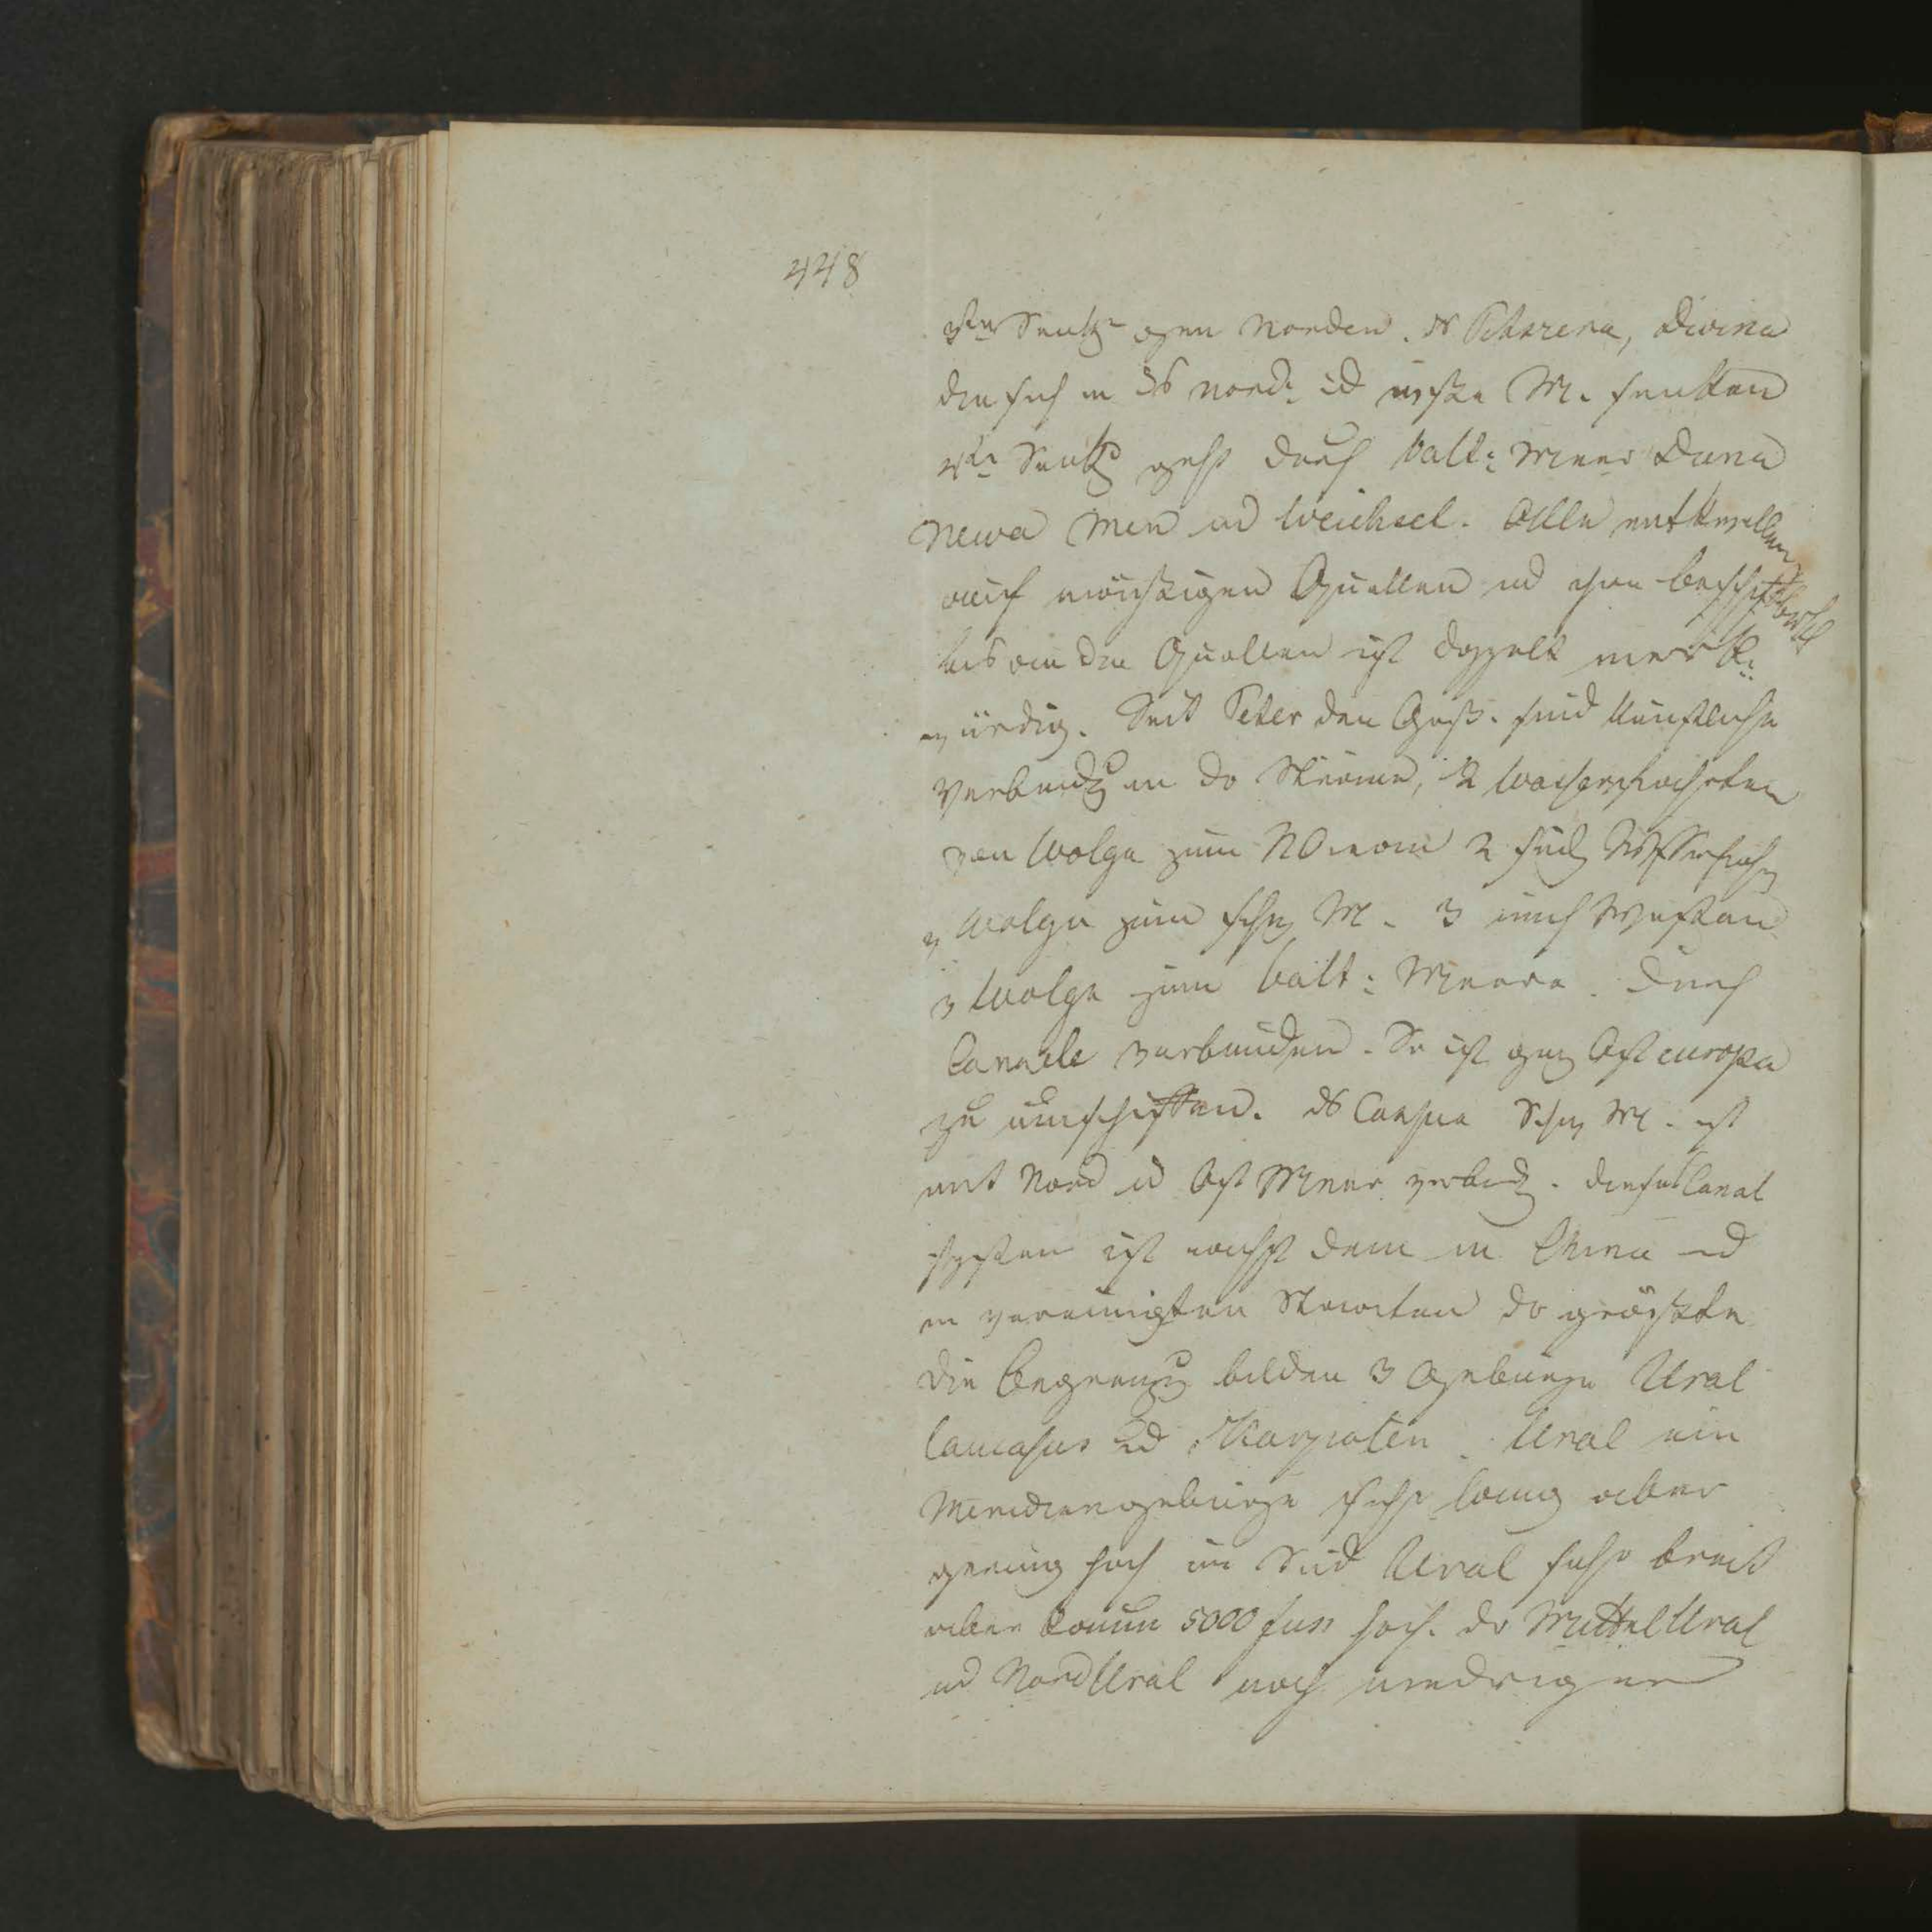 448
3te Senkg gen Norden. ds Petschora, Dwina
die sich in ds Nord: ud weiße M. senken
4te Senkg geht durch balt: Meer Duna
Newa Men ud Weichsel. Alle entquellen
auf Quellen ud ihre
bis an die Quellen ist doppelt merk:
würdig. Seit Peter den Groß. sind künstliche
Verbindg in dr Ströme, 2 Wasserstraßen
von Wolga zum 2 südl
v Wolga zum schw M. 3 nach Westen
v Wolga zum balt: Meere. durch
Canäle verbunden. So ist gnz Ost europa
zu umschiffen. ds Schw M. ist
mit Nord ud Ost Meer verbd. dieses Canal
system ist nächst dem in China ud
in vereinigten Staaten dr grösste
die Begrenzg bilden 3 Gebürge Ural
Caucasus ud Karpaten. Ural ein
Meridiangebürge sehr lang aber
gering hoch im Süd Ural sehr breit
aber kaum 5000 fuss hoch. dr Mittel Ural
ud Nord Ural noch niedriger